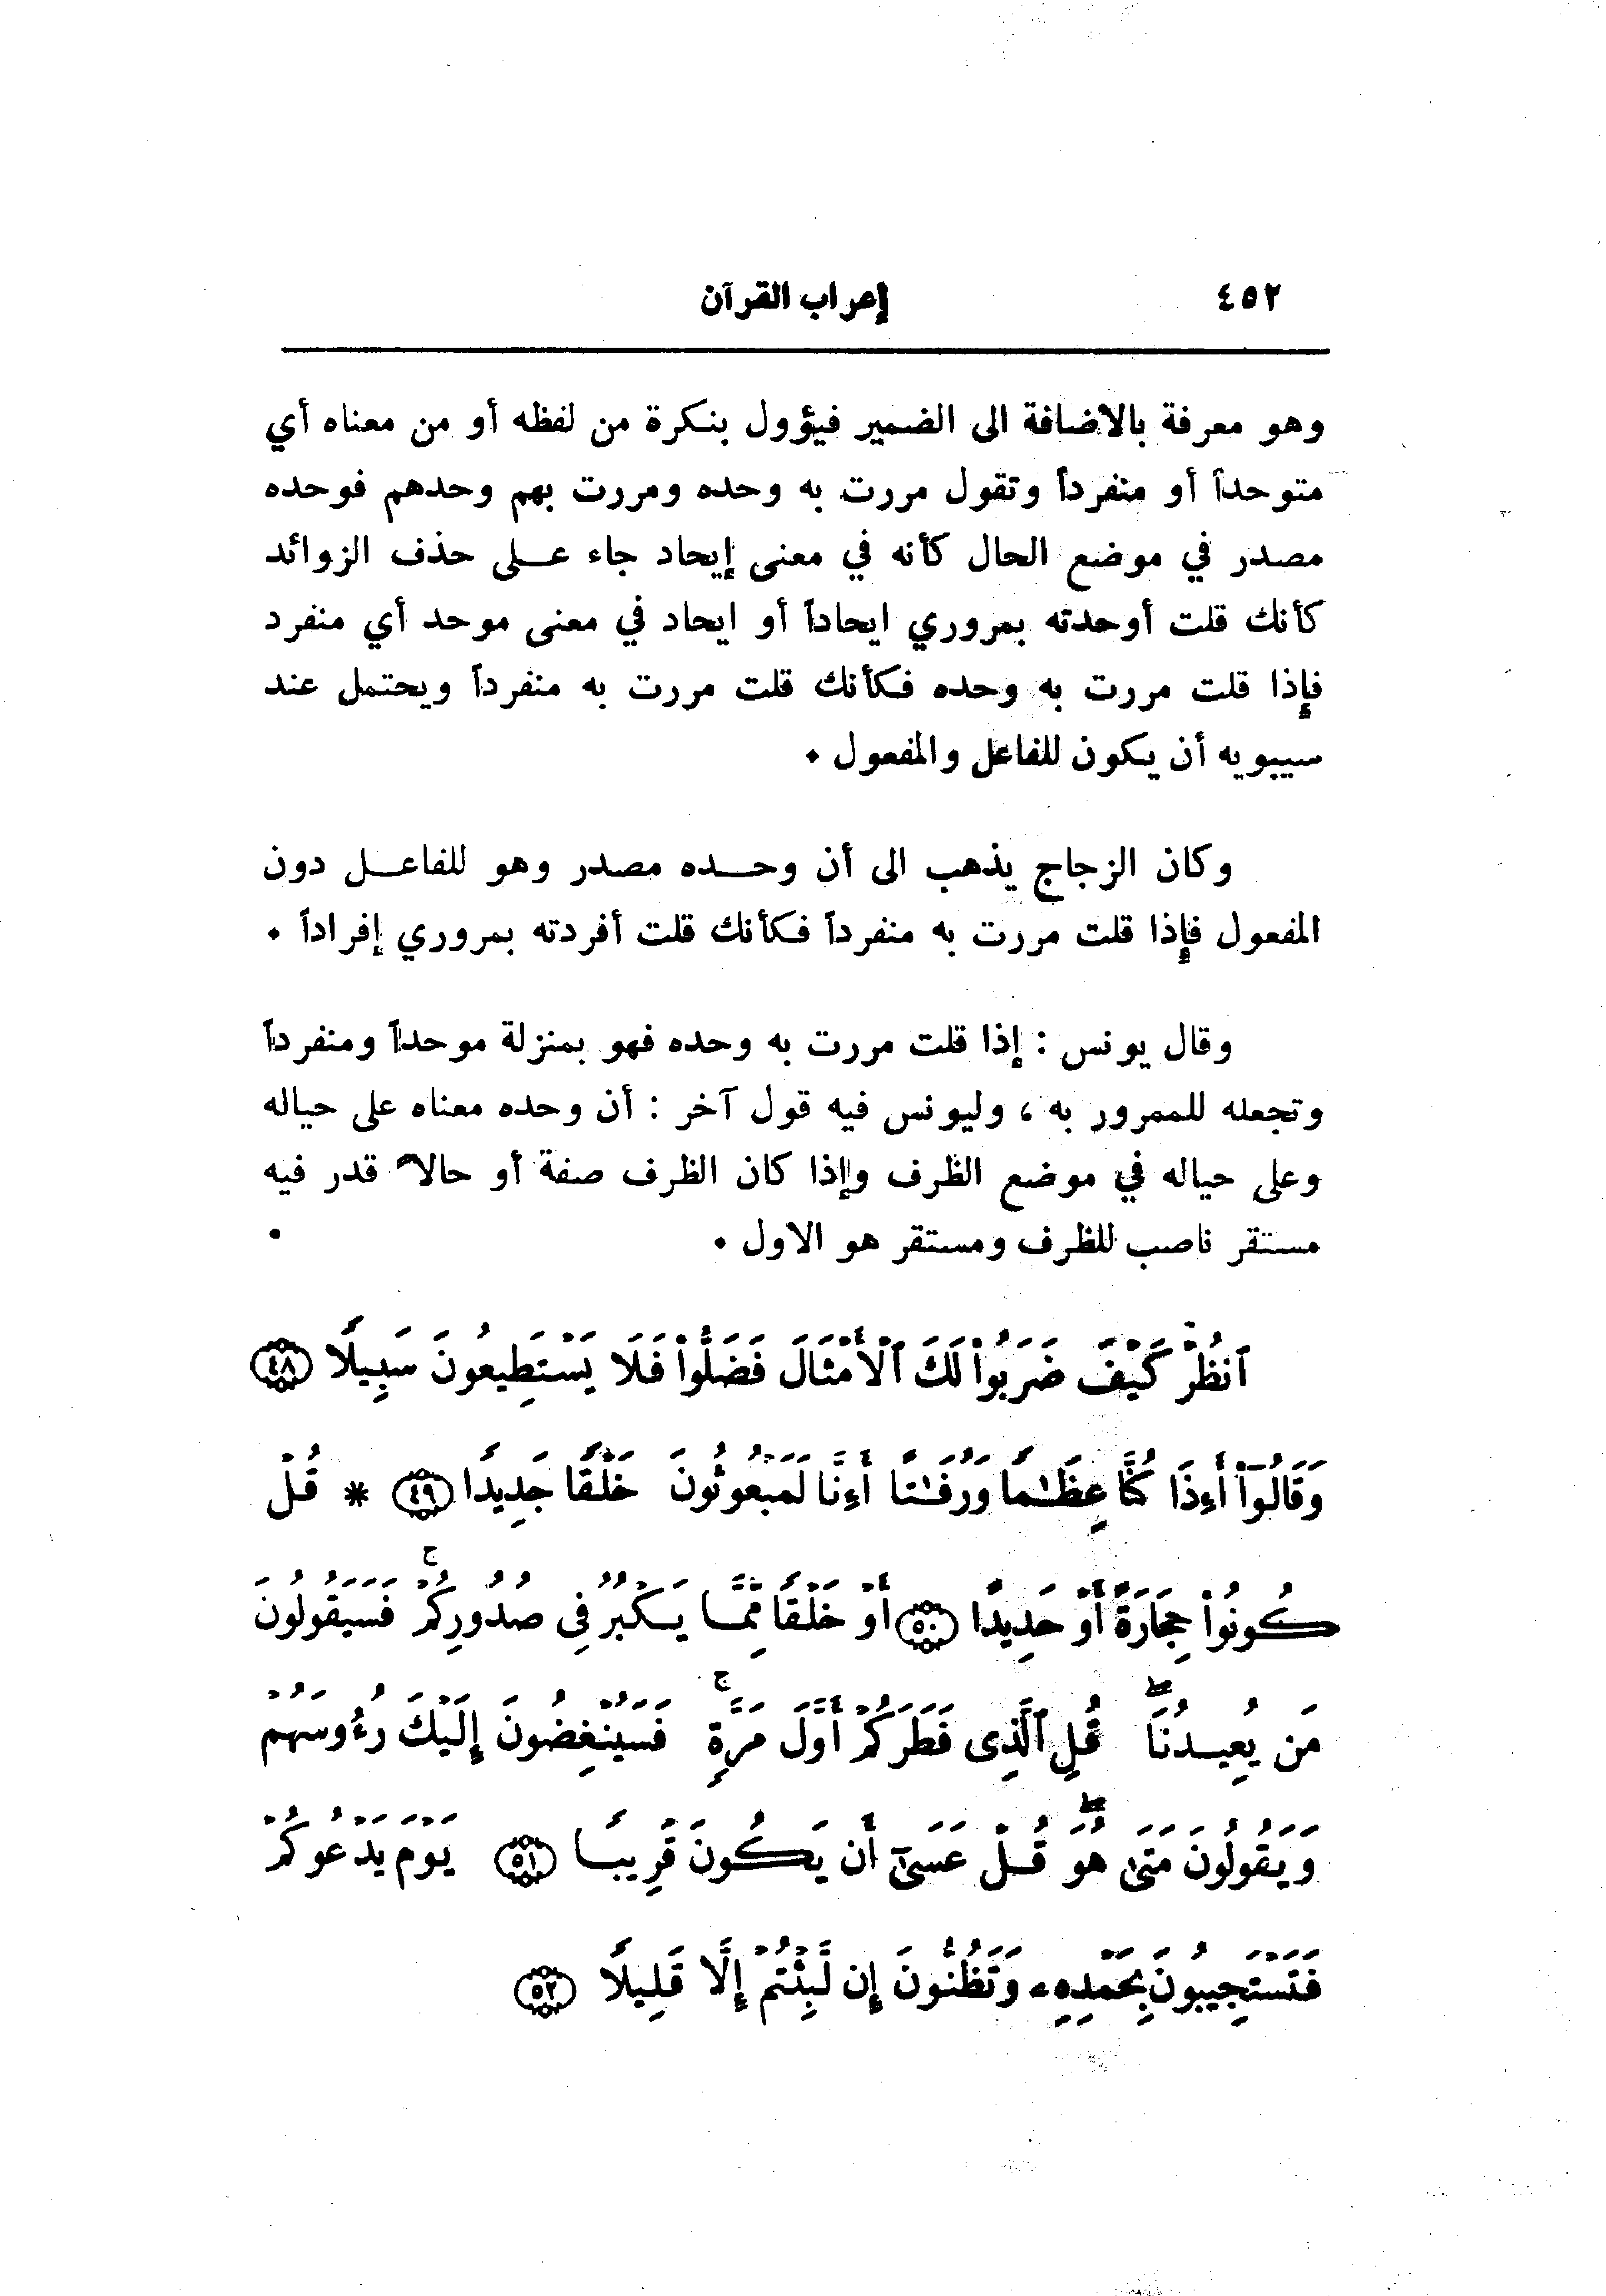 ٤٥٢ إعراب القرآن
وهو معرفة بالاضافة الى الضمير فيؤول بنكرة من لفظه أو من معناه أي
متوحداً أو منفرداً وتقول مررت به وحده ومررت بهم وحدهم فوحده
مصدر في موضع الحال كأنه في معنى إيحاد جاء على حذف الزوائد
كأنك قلت أوحدته بمروري ايحاداً أو ايحاد في معنى موحد أي منفرد
فإذا قلت مررت به وحده فكأنك قلت مررت به منفرداً ويحتمل عند
سيبويه أن يكون للفاعل والمفعول .
وكان الزجاج يذهب الى أن وحده مصدر وهو للفاعل دون
المفعول فإذا قلت مررت به منفرداً فكأنك قلت أفردته بمروري إفراداً .
وقال يونس : إذا قلت مررت به وحده فهو بمنزلة موحداً ومنفرداً
وتجعله للممرور به ، وليونس فيه قول آخر : أن وحده معناه على حياله
وعلى حياله في موضع الظرف وإذا كان الظرف صفة أو حالاً قدر فيه
مستقر ناصب للظرف ومستقر هو الاول .
ٱنظُرْ كَيْفَ ضَرَبُواْ لَكَ ٱلْأَمْثَالَ فَضَلُّواْ فَلَا يَسْتَطِيعُونَ سَبِيلًا ﴿٤٨﴾
وَقَالُوٓاْ أَءِذَا كُنَّا عِظَٰمًا وَرُفَٰتًا أَءِنَّا لَمَبْعُوثُونَ خَلْقًا جَدِيدًا ﴿٤٩﴾ * قُلْ
كُونُواْ حِجَارَةً أَوْ حَدِيدًا ﴿٥٠﴾ أَوْ خَلْقًا مِّمَّا يَكْبُرُ فِى صُدُورِكُمْ ۚ فَسَيَقُولُونَ
مَن يُعِيدُنَا ۖ قُلِ ٱلَّذِى فَطَرَكُمْ أَوَّلَ مَرَّةٍ ۚ فَسَيُنْغِضُونَ إِلَيْكَ رُءُوسَهُمْ
وَيَقُولُونَ مَتَىٰ هُوَ ۖ قُلْ عَسَىٰٓ أَن يَكُونَ قَرِيبًا ﴿٥١﴾ يَوْمَ يَدْعُوكُمْ
فَتَسْتَجِيبُونَ بِحَمْدِهِۦ وَتَظُنُّونَ إِن لَّبِثْتُمْ إِلَّا قَلِيلًا ﴿٥٢﴾